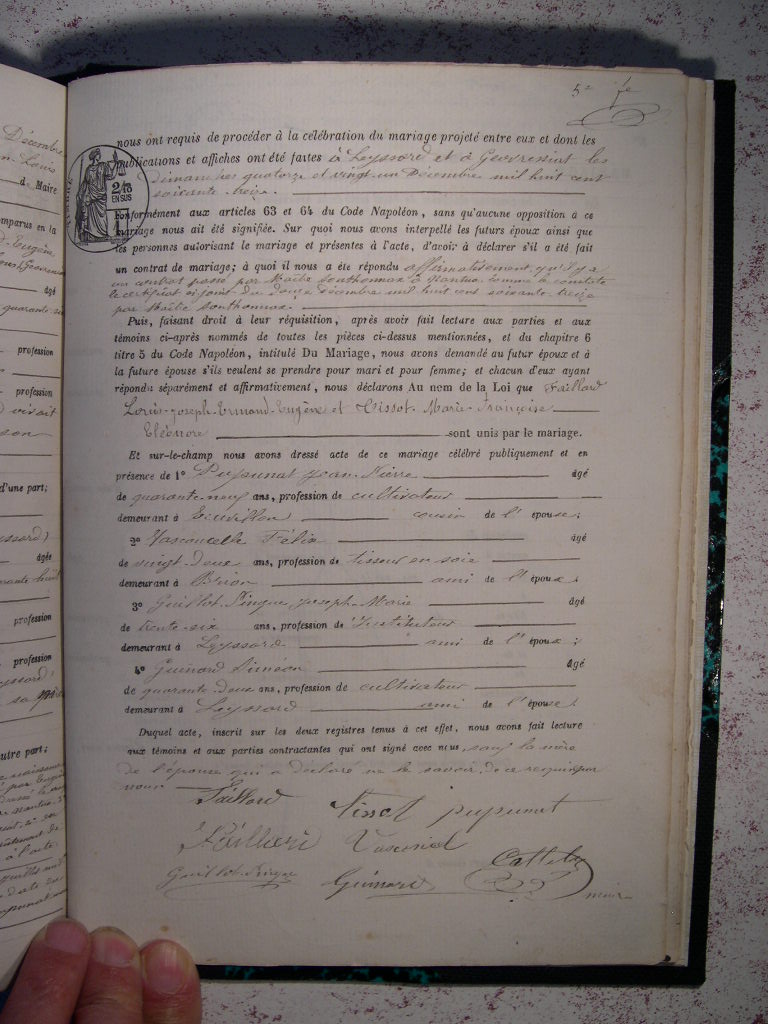 5e
Décembre
Louis
d Maire
omparus en la
d. Eugène
âgé
quarante
profession
profession
vivait
son
d'une part;
Leyssard)
âgée
quarante huit
profession
profession
Leyssard
sa
autre part;
à l'acte
2/10
EN SUS
nous ont requis de procéder à la célébration du mariage projeté entre eux et dont les
publications et affiches ont été faites à Leyssard et à Geovressiat les
dimanches quatorze et vingt-un Décembre mil huit cent
soixante treize.
conformément aux articles 63 et 64 du Code Napoléon, sans qu'aucune opposition à ce
mariage nous ait été signifiée. Sur quoi nous avons interpellé les futurs époux ainsi que
les personnes autorisant le mariage et présentes à l'acte, d'avoir à déclarer s'il a été fait
un contrat de mariage; à quoi il nous a été répondu affirmativement qu'il y a
un contrat passé par Maître Southonnax à Nantua comme le constate
le certificat ci-joint du douze décembre mil huit cent soixante treize
par Maître Southonnax.
Puis, faisant droit à leur réquisition, après avoir fait lecture aux parties et aux
témoins ci-après nommés de toutes les pièces ci-dessus mentionnées, et du chapitre 6
titre 5 du Code Napoléon, intitulé Du Mariage, nous avons demandé au futur époux et à
la future épouse s'ils veulent se prendre pour mari et pour femme; et chacun d'eux ayant
répondu séparément et affirmativement, nous déclarons Au nom de la Loi que Faillard
Louis-Joseph-Armand-Eugène et Tissot Marie-Françoise
Eléonore sont unis par le mariage.
Et sur-le-champ nous avons dressé acte de ce mariage célébré publiquement et en
présence de 1o Pupunat Jean-Pierre âgé
de quarante-neuf ans, profession de cultivateur
demeurant à cousin de l'épouse;
2o Vasconcelle Félix âgé
de vingt-deux ans, profession de tisseur en soie
demeurant à Brion ami de l'époux;
3o Guillot-Pingue Joseph-Marie âgé
de trente-six ans, profession de Instituteur
demeurant à Leyssard ami de l'époux;
4o Guinard Siméon âgé
de quarante-deux ans, profession de cultivateur
demeurant à Leyssard ami de l'épouse.
Duquel acte, inscrit sur les deux registres tenus à cet effet, nous avons fait lecture
aux témoins et aux parties contractantes qui ont signé avec nous, sauf la mère
de l'épouse qui a déclaré ne le savoir, de ce requis par
nous
Faillard Tissot pupunat
Guillot-Pingue Guinard maire